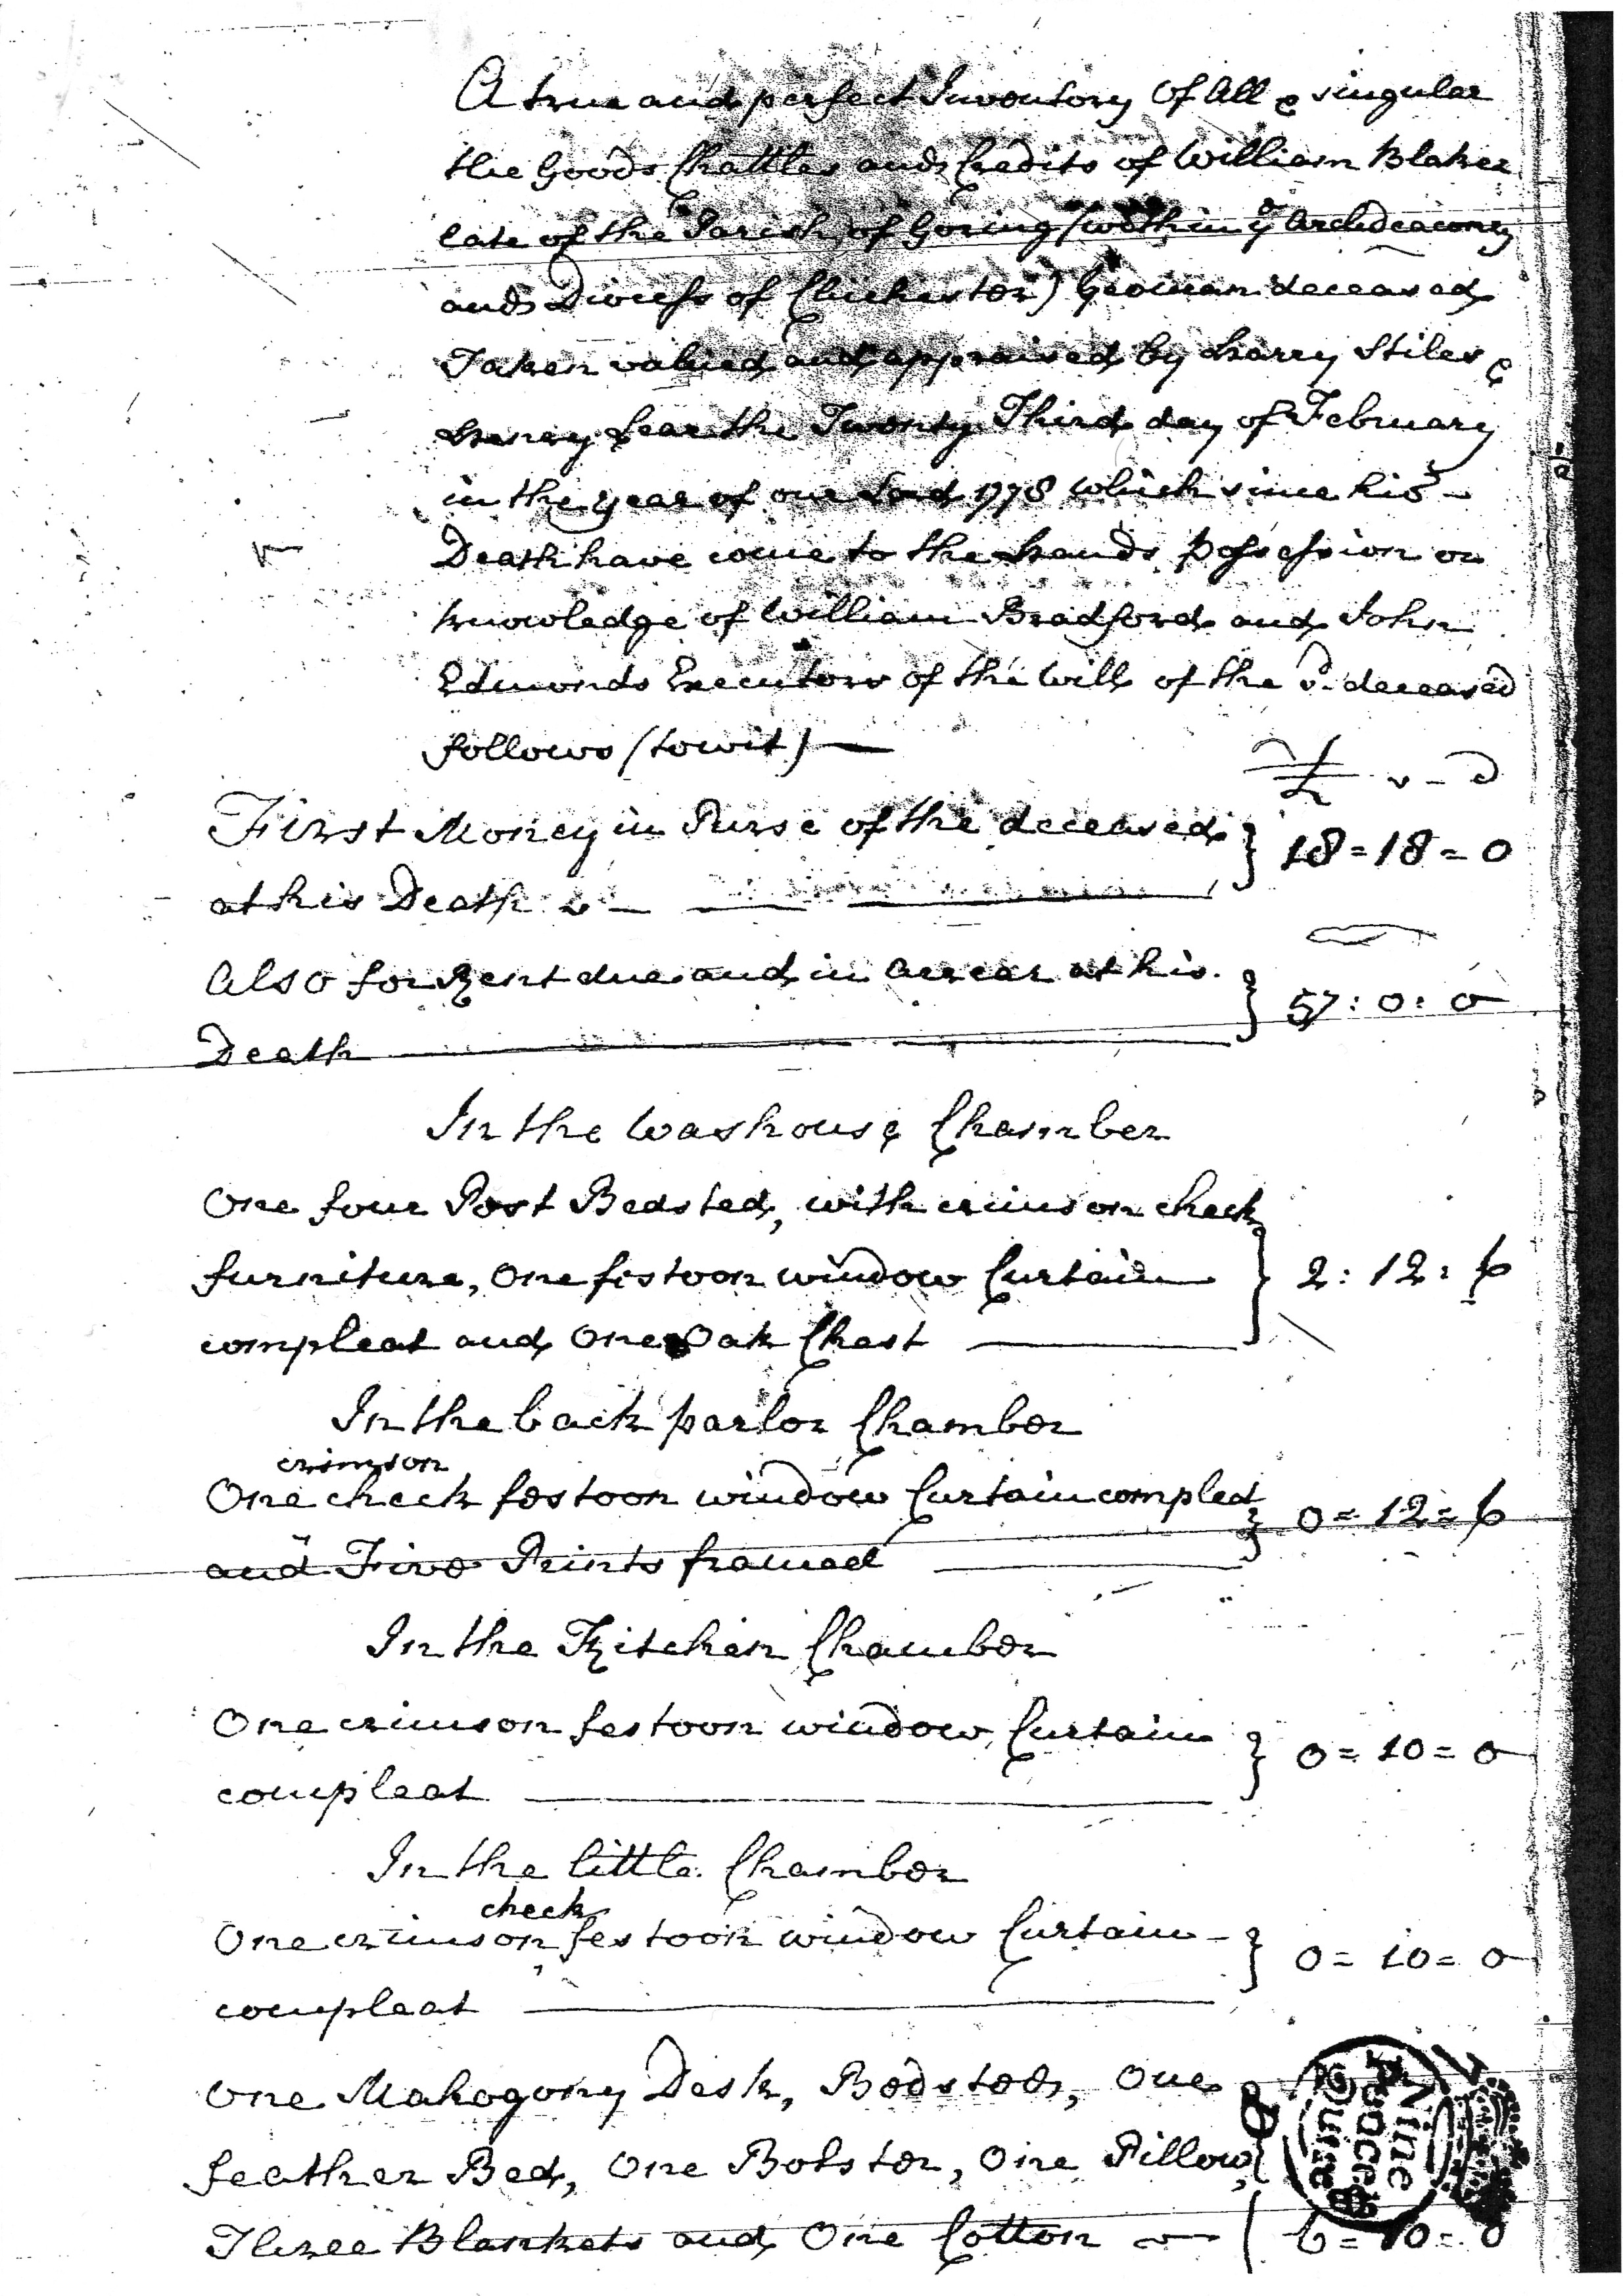 A true and perfect Inventory of All & singular
the Goods Chattles and Credits of William Blaker
late of the Parish of Goring (within ye Archdeaconry
and Diocess of Chichester) Yeoman deceased
Taken valued and appraised by Harry Stiles &
Henry Lear the Twenty Third day of February
in the year of our Lord 1778 which since his
Death have come to the Hands Possession or
knowledge of William Bradford and John
Edmonds Executors of the Will of the sd. deceased
follows (towit)
£ s d
First Money in Purse of the deceased } 18 = 18 = 0
at his Death is
Also for Rent due and in Arrear at his } 57 : 0 : 0
Death
In the Washouse Chamber
One four Post Bedsted, with crimson check
furniture, One festoon window Curtain } 2 : 12 : 6
compleat and One Oak Chest
In the back parlor Chamber
crimson
One check festoon window Curtain compleat } 0 = 12 = 6
and Five Prints framed
In the Kitchen Chamber
One crimson festoon window Curtain } 0 = 10 = 0
compleat
In the little Chamber
check
One crimson festoon window Curtain } 0 = 10 = 0
compleat
One Mahogony Desk, Bedsted, One
feather Bed, One Bolster, One Pillow,
Three Blankets and One Cotton 6 = 10 = 0
Nine
Pence